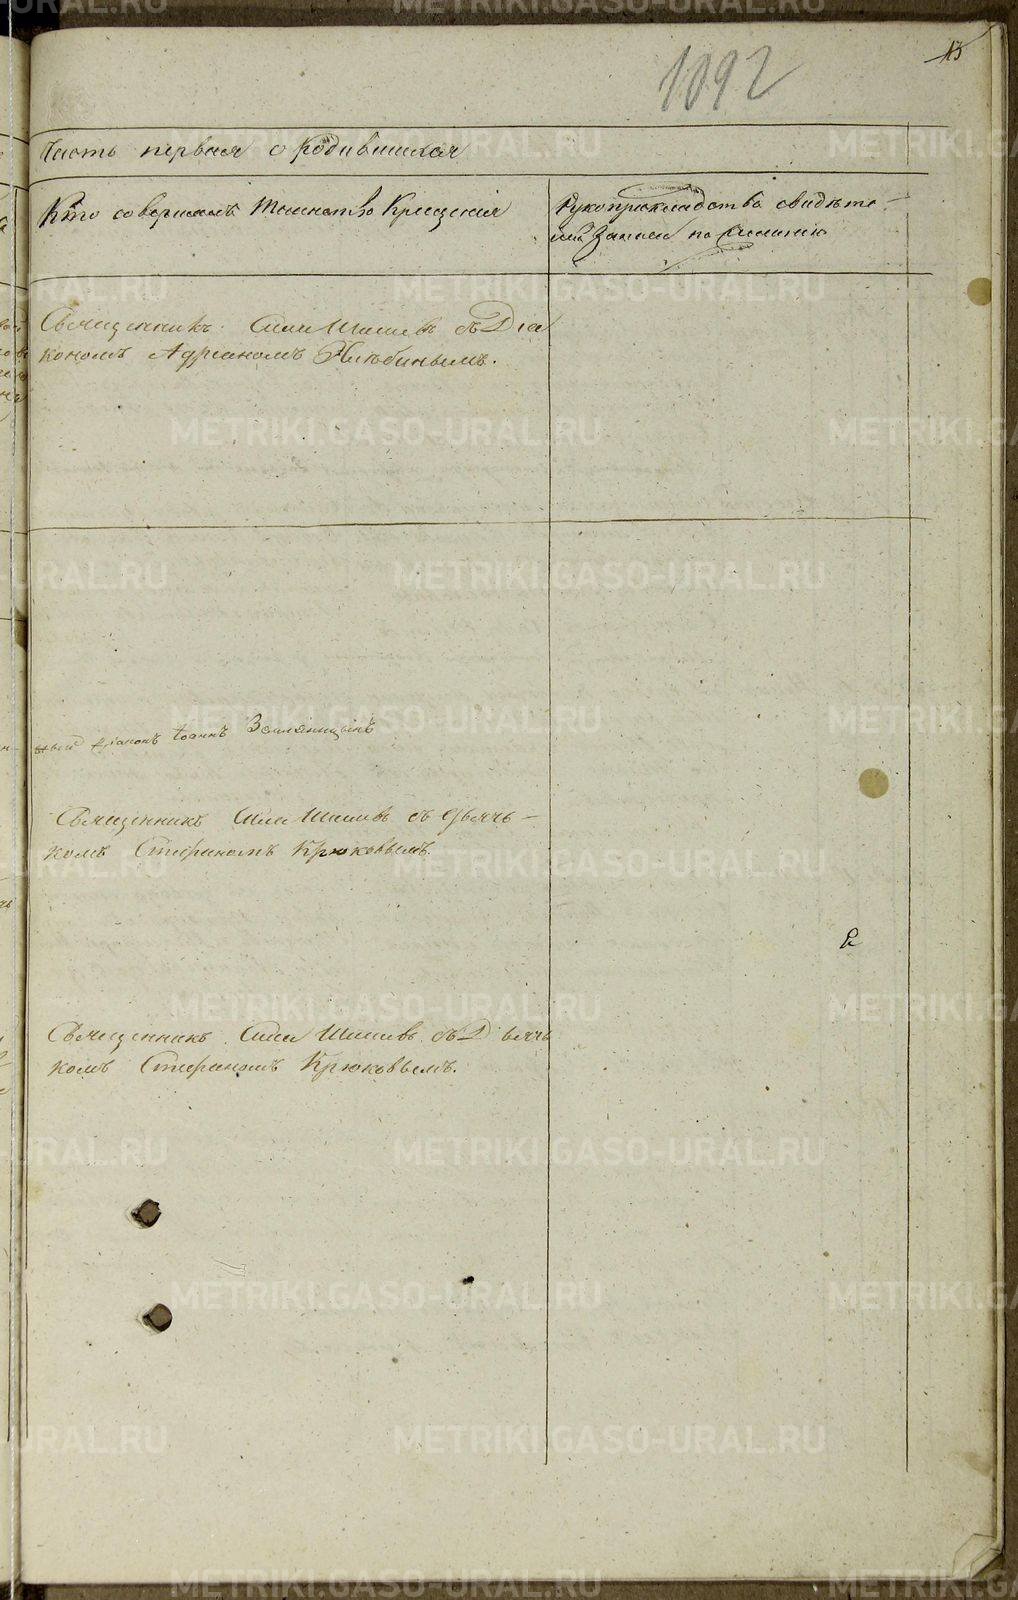 1092
13
Часть первая о родившихся
Кто совершалъ Таинство Крещенія
Рукоприкладства свидѣте-
лей записи по желанію
Священникъ Сила Шишевъ съ Діа
кономъ Адріаномъ Хлѣбинымъ.
діаконъ Іоаннъ Земляницынъ
Священникъ Сила Шишевъ съ Дьяч-
комъ Стефаномъ Крюковымъ.
Священникъ Сила Шишевъ съ Дьяч
комъ Стефаномъ Крюковымъ.
METRIKI.GASO-URAL.RU